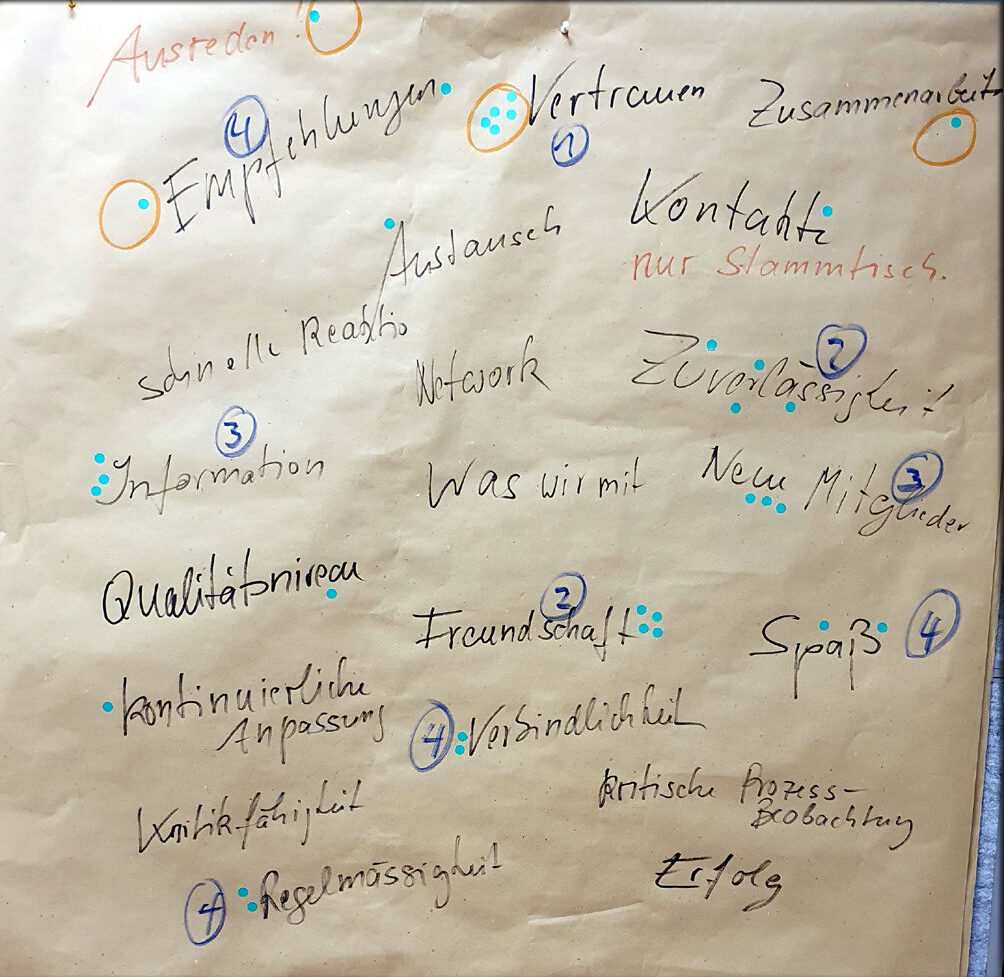 Ausreden!
Vertrauen
Zusammenarbeit
4
Empfehlungen
1
Kontakte
nur Stammtisch.
Austausch
schnelle Reaktio
Network
2
Zuverlässigkeit
3
Information
Was wir mit
Neue Mitglieder
3
Qualitätsniveau
2
Freundschaft
Spaß
4
kontinuierliche
Anpassung
4
Verbindlichkeit
kritische Prozess-
Beobachtung
Kritikfähigkeit
4
Regelmässigkeit
Erfolg